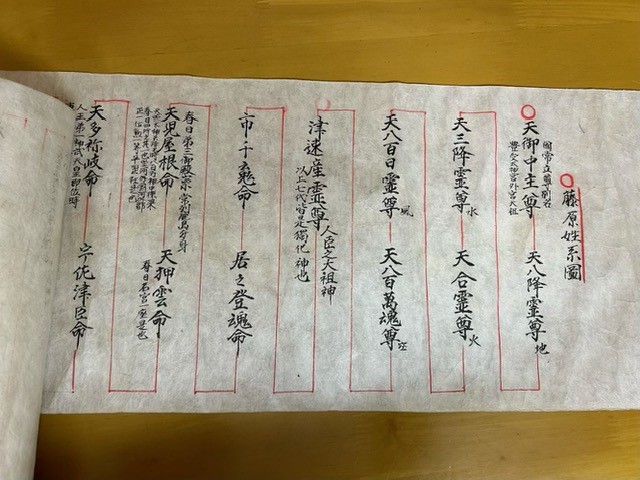 藤原姓系圖
天御中主尊
國常立尊別名
豊受太神宮外宮大祖
天八降霊尊 地
天三降霊尊 水
天合霊尊 火
天八百日霊尊 風
天八百萬魂尊
津速産霊尊
人臣之大祖神
以上七代皆是獨化神也
市千魂命
居之登魂命
春日第三御殿
天児屋根命
天押雲命
春日若宮一座是也
天多祢岐命
人王第一神武天皇御
宇佐津臣命